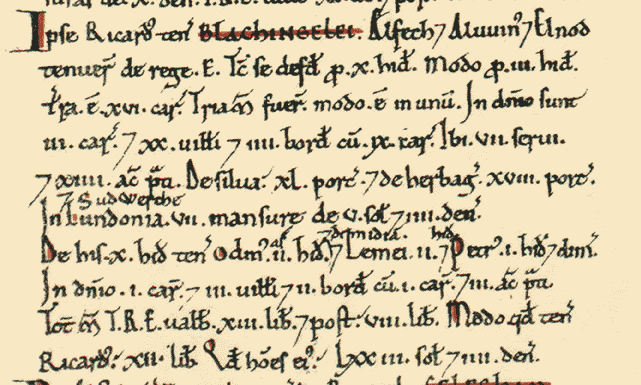 Ipse Ricard' ten' BLACHINGELEI. Alfech 7 Aluuin' 7 Elnod
tenuer' de rege. E. Tc' se defd' p. x. hid'. Modo p. iii. hid'.
t'ra. e'. xvi. car'. Tria m' fuer'. modo. e' in unu'. In dn'io sunt
iii. car'. 7 xx. uill'i 7 iiii. bord' cu'. ix. car'. Ibi. vii. serui.
7 xiiii. ac' p'ti. De silua. xl. porc'. 7 de herbag'. xviii. porc'.
7 Sudwerche
In Lundonia. vii. mansure de v. sol' 7 iiii. den'.
De his. x. hid' ten' Odm' ii. hid' 7 dimidia'. 7 Lemei. ii. hid' 7 Petr'. i. hid' 7 dim'.
In dn'io. i. car'. 7 iii. uill'i 7 ii. bord' cu'. i. car'. 7 iii. ac' p'ti
Tot' m' T.R.E. ualb'. xiii. lib'. 7 post'. viii. lib'. Modo qd' ten'
Ricard'. xii. lib'. Qd' ho'es ei'. Lxxiii. sol' 7 iiii. den'.